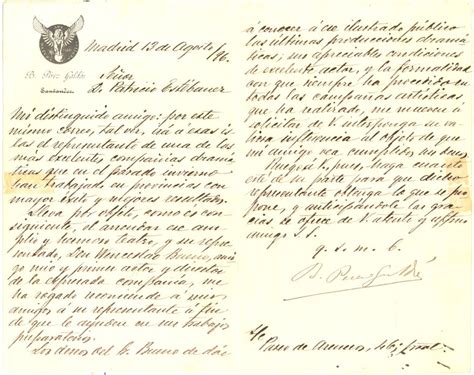 B. Pérez Galdós
Santander
Madrid 13 de Agosto/96.
Señor
D. Patricio Estébanez
Mi distinguido amigo: por este
mismo correo, tal vez, irá a esas is
las el representante de una de las
mas exelentes compañias dramá
ticas que en el pasado invierno
han trabajado en provincias con
mayor éxito y mejores resultados.
Lleva por objeto, como es con-
siguiente, el arrendar ese am-
plio y hermoso teatro, y su repre-
sentado, Don Wenceslao Bueno, ami
go mio y primer actor y director
de la espresada compañia, me
ha rogado recomiende á mis
amigos a su representante á fin
de que le ayuden en sus trabajos
preparatorios.
Los deseos del Sr. Bueno de dar
á conocer á ese ilustrado público
las últimas producciones dramá-
ticas, sus apreciables condiciones
de exelente actor, y la formalidad
con que siempre ha procedido en
todas las campañas artísticas
que ha realizado, me mueven á
solicitar de V. interponga su va
liosa influencia al objeto de que
mi amigo vea cumplidos sus deseos
Ruégole, pues, haga cuanto
esté de su parte para que dicho
representante obtenga lo que se pro
pone, y anticipándole las gra-
cias se ofrece de V. atento y affmo
amigo S. S.
q. s. m. b.
B. Pérez Galdós
Paseo de Areneros, 46,